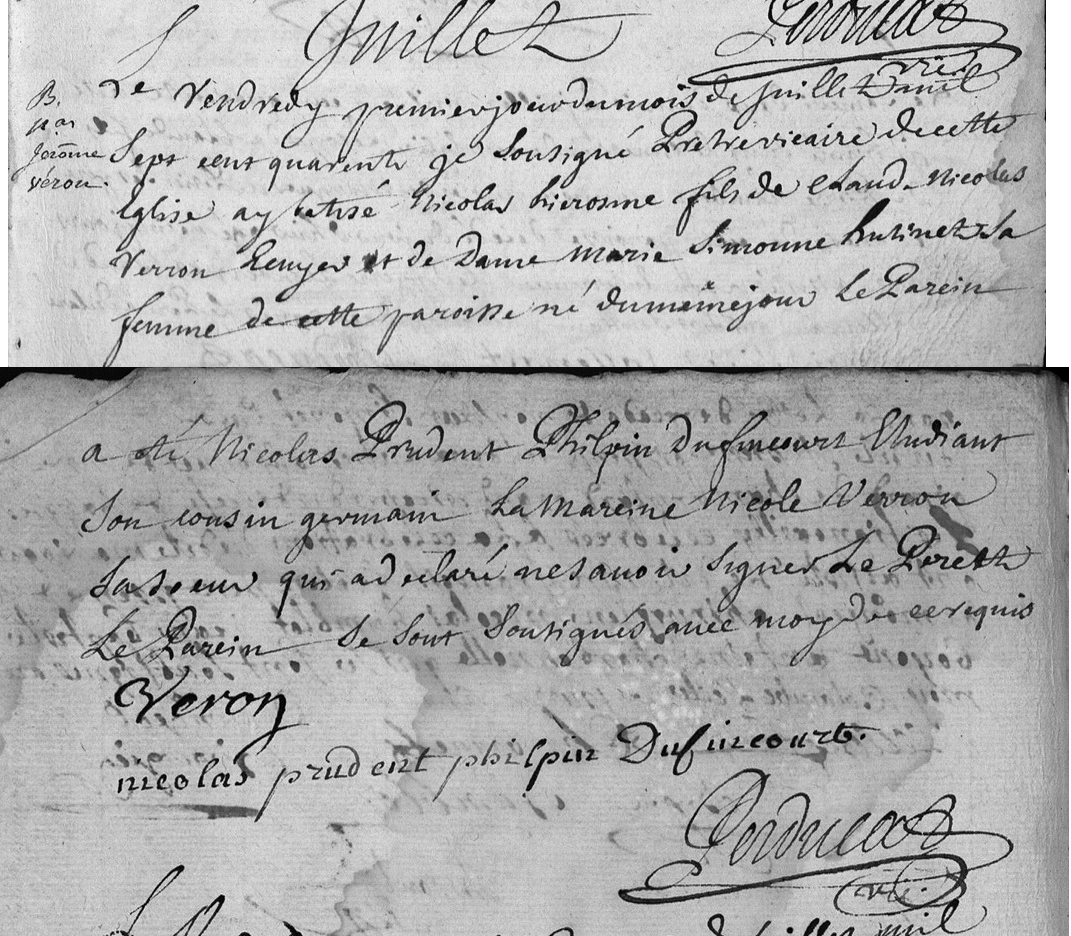 Juillet
Perducat
vic.
B.
Nas
Jerôme
véron.
Le Vendredy premier jour du mois de Juillet mil
Sept cent quarente je Soussigné Pretre vicaire de cette
Eglise ay batisé Nicolas hierosme fils de Claude Nicolas
Verron Ecuyer et de Dame Marie Simonne hutinet Sa
femme de cette paroisse né du même jour Le Parein
a été Nicolas Prudent Philpin Dufincourt Etudiant
Son cousin germain La Mareine Nicole Verron
Sa Soeur qui a declaré ne Savoir Signer Le Pere et
Le Parein Se Sont Soutignés avec moy de ce requis
Veron
nicolas prudent philpin Dufincourt.
Perducat
vic.
Juillet mil